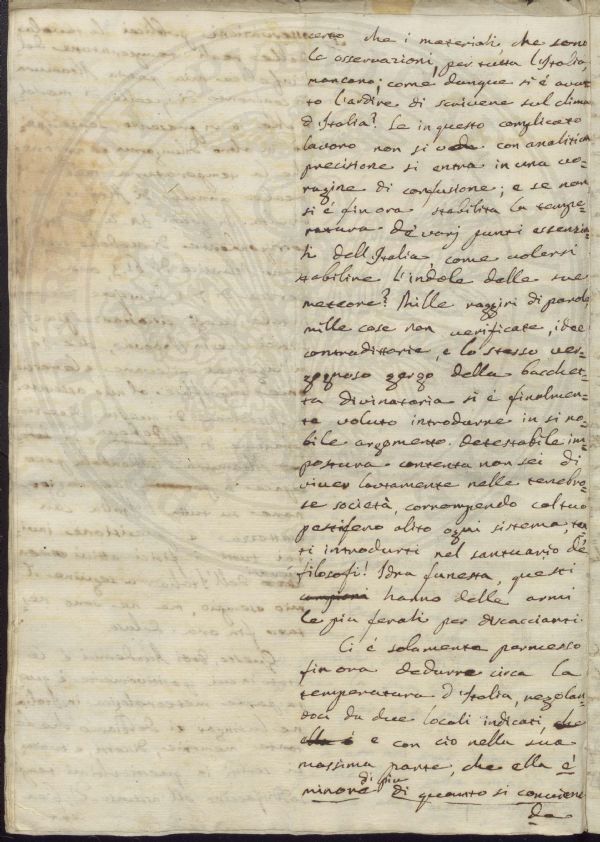 certo che i materiali, che sono
le osservazioni, per tutta l'Italia,
mancano; come dunque si é avu-
to l'ardire di scrivere sul clima
d'Italia? Se in questo complicato
lavoro non si vede con analitica
precisione si entra in una vo-
ragine di confusione; e se non
si é fin ora stabilita la tempe-
ratura de' varj punti essenzia-
li dell'Italia, come volersi
stabilire l'indole delle sue
meteore? Mille raggiri di parole,
mille cose non verificate, idee
contradittorie, e lo stesso ver-
gognoso gergo della bacchet-
ta divinatoria si é finalmen-
te voluto introdurre in si no-
bile argomento. Detestabile im-
postura contenta non sei di
viver lautamente nelle tenebro-
se società, corrompendo col tuo
pestifero alito ogni sistema,
ti introdurti nel santuario de'
filosofi! Idra funesta, questi
hanno delle armi
le piu ferali per discacciarti.
Ci é solamente permesso
fin ora dedurre circa la
temperatura d'Italia, regolan-
doci da due locali indicati, che
ella é e con cio nella sua
massima parte, che ella é
minore di piu di quanto si conviene
da